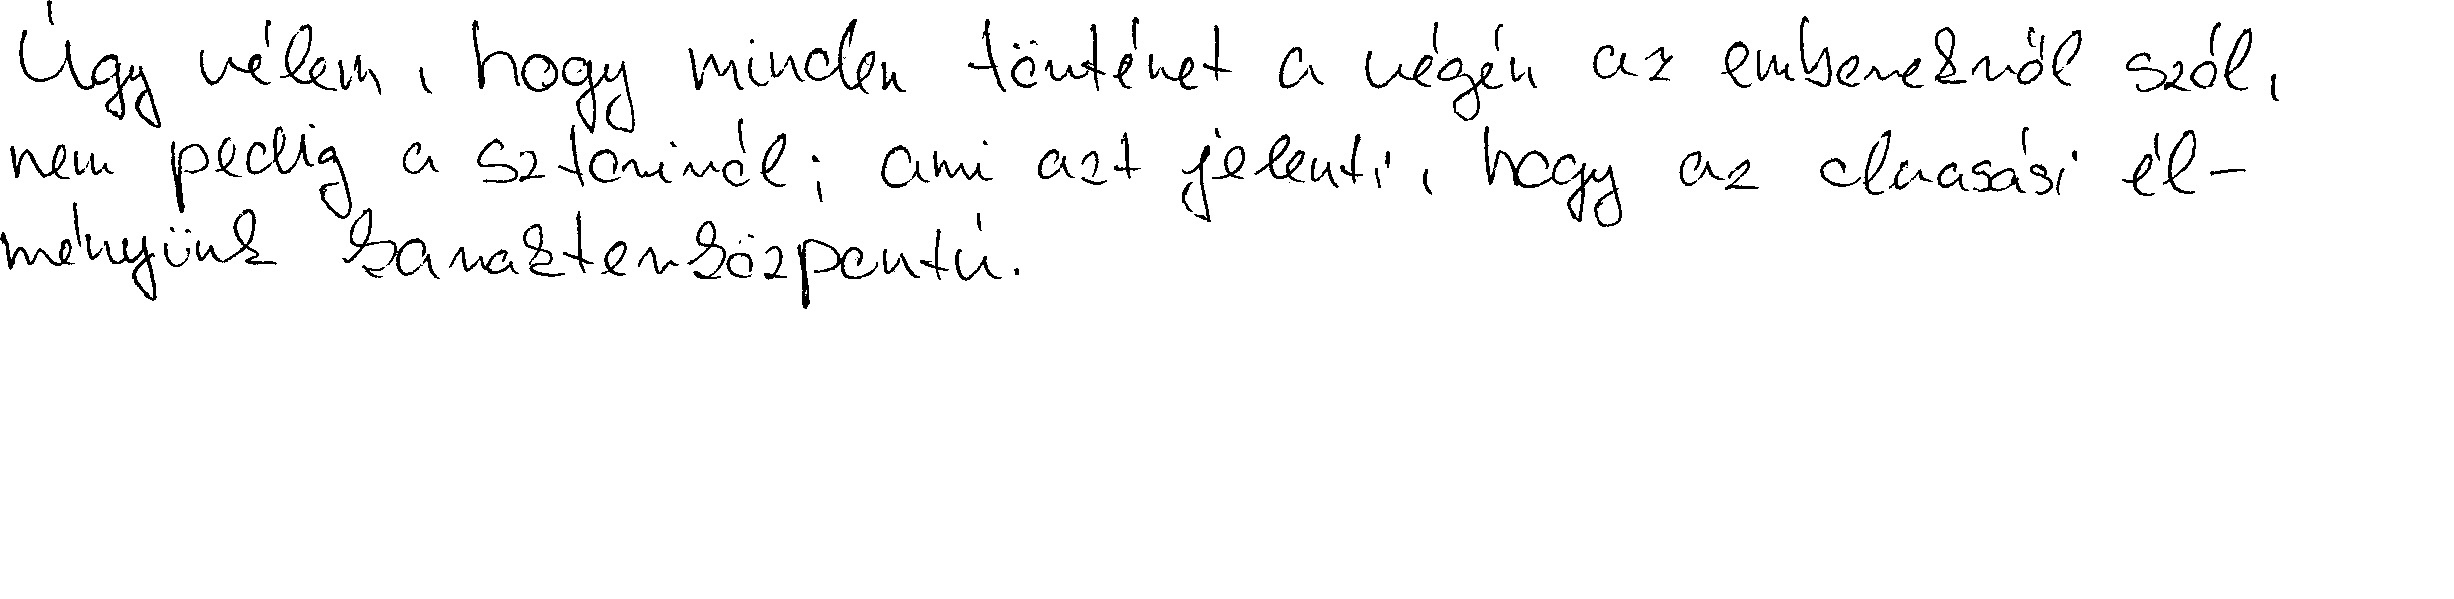 Úgy vélem, hogy minden történet a végén az emberekről szól,
nem pedig a sztoriról; ami azt jelenti, hogy az olvasási él-
ményünk karakterközpontú.